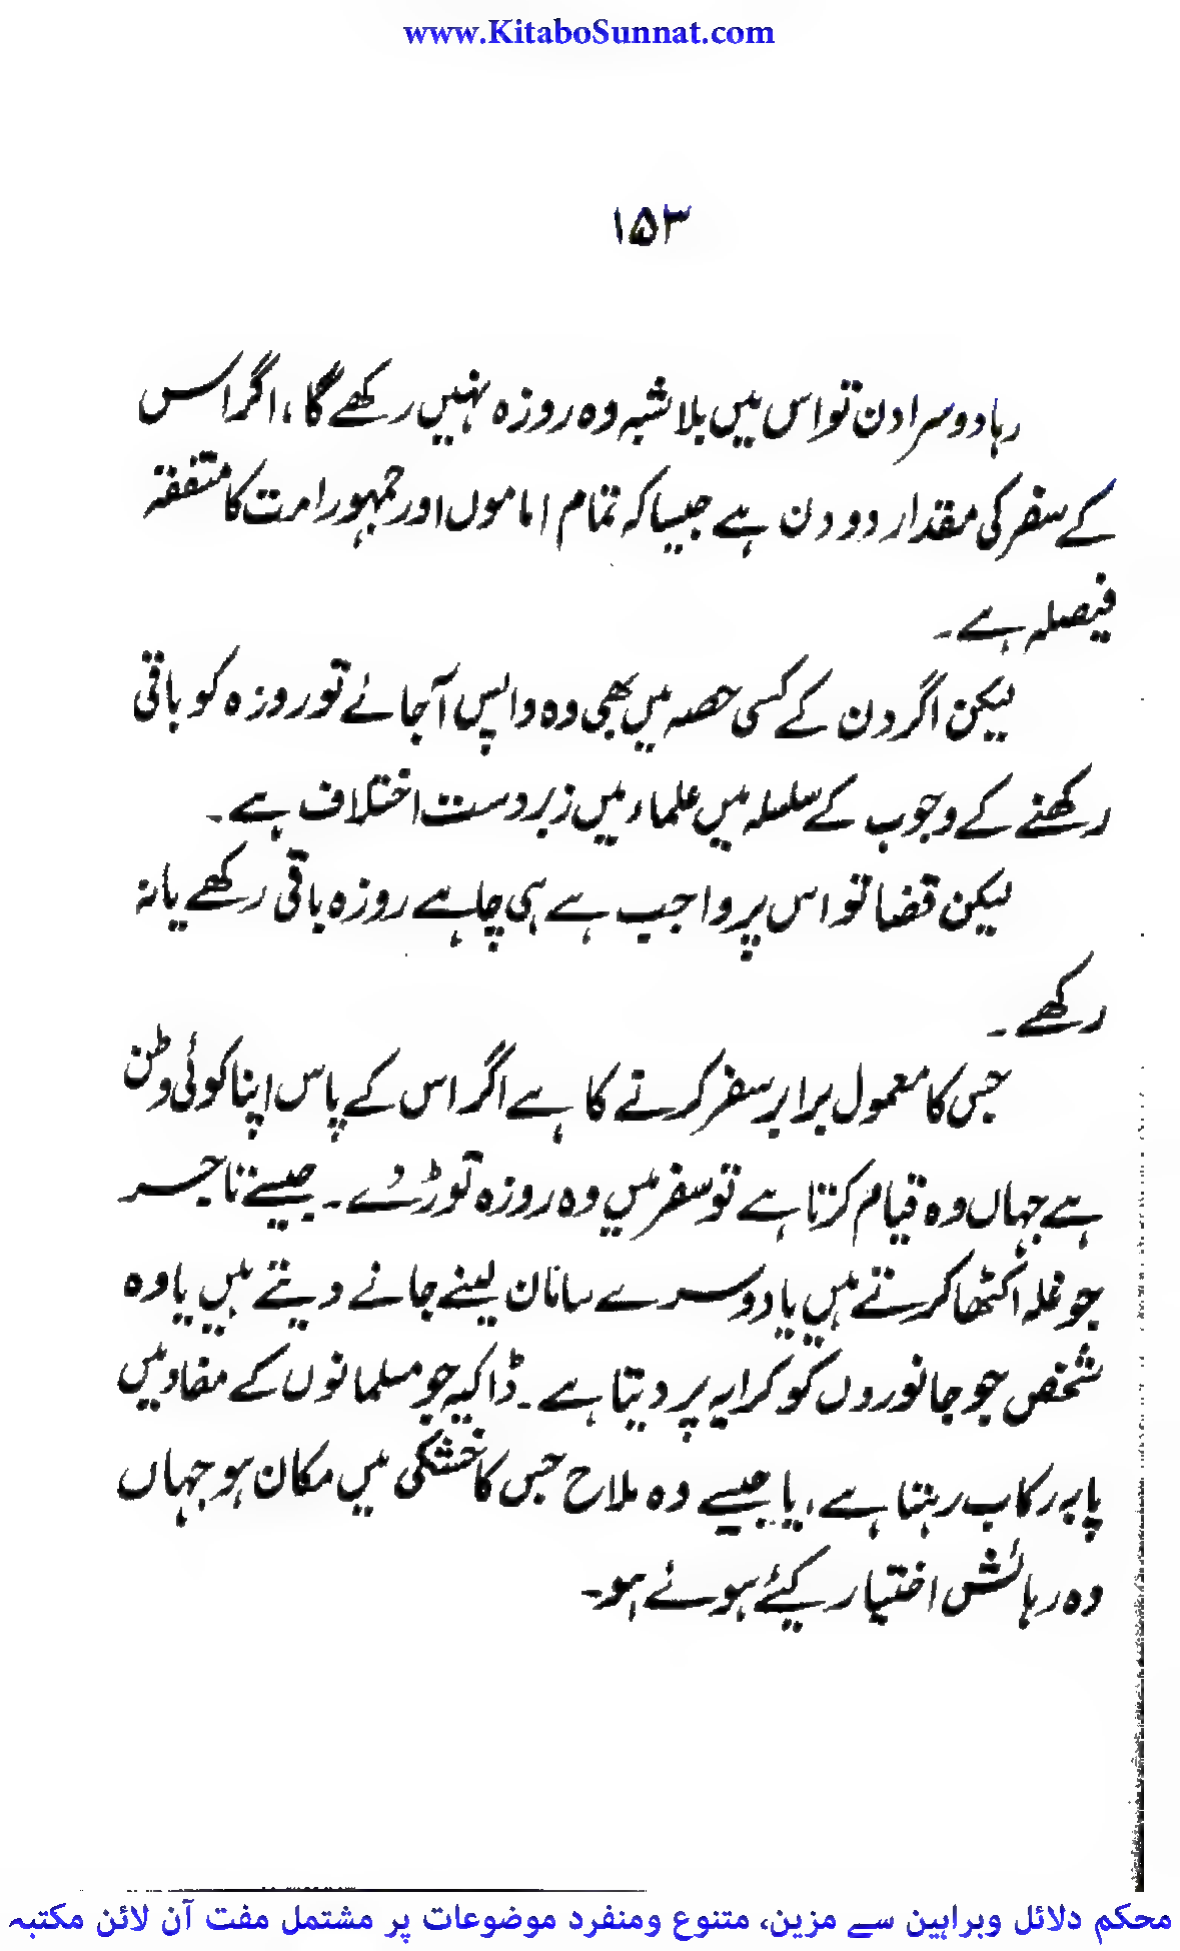 www.KitaboSunnat.com
۱۵۳
رہا دوسرا دن تو اس میں بلا شبہ وہ روزہ نہیں رکھے گا، اگر اس
کے سفر کی مقدار دو دن ہے جیسا کہ تمام اماموں اور جمہور امت کا متفقہ
فیصلہ ہے۔
لیکن اگر دن کے کسی حصہ میں بھی وہ واپس آجائے تو روزہ کو باقی
رکھنے کے وجوب کے سلسلہ میں علماء میں زبردست اختلاف ہے۔
لیکن قضا تو اس پر واجب ہے ہی چاہے روزہ باقی رکھے یا نہ
رکھے۔
جس کا معمول برابر سفر کرنے کا ہے اگر اس کے پاس اپنا کوئی وطن
ہے جہاں وہ قیام کرتا ہے تو سفر میں وہ روزہ توڑ دے۔ جیسے تاجر
جو غلہ اکٹھا کرتے ہیں یا دوسرے سامان لینے جانے دیتے ہیں یا وہ
شخص جو جانوروں کو کرایہ پر دیتا ہے۔ ڈاکیہ جو مسلمانوں کے مفاد میں
پابہ رکاب رہتا ہے، یا جیسے وہ ملاح جس کا خشکی میں مکان ہو جہاں
وہ رہائش اختیار کیئے ہوئے ہو۔
محکم دلائل وبراہین سے مزین، متنوع ومنفرد موضوعات پر مشتمل مفت آن لائن مکتبہ